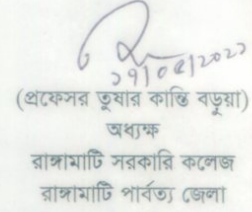 ২৭/০৫/২০২১
(প্রফেসর তুষার কান্তি বড়ুয়া)
অধ্যক্ষ
রাঙ্গামাটি সরকারি কলেজ
রাঙ্গামাটি পার্বত্য জেলা